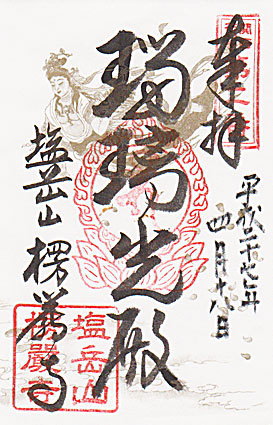 奉拝
平成二十七年
四月十八日
瑠璃光殿
塩岳山 楞嚴寺
塩岳山
楞嚴寺